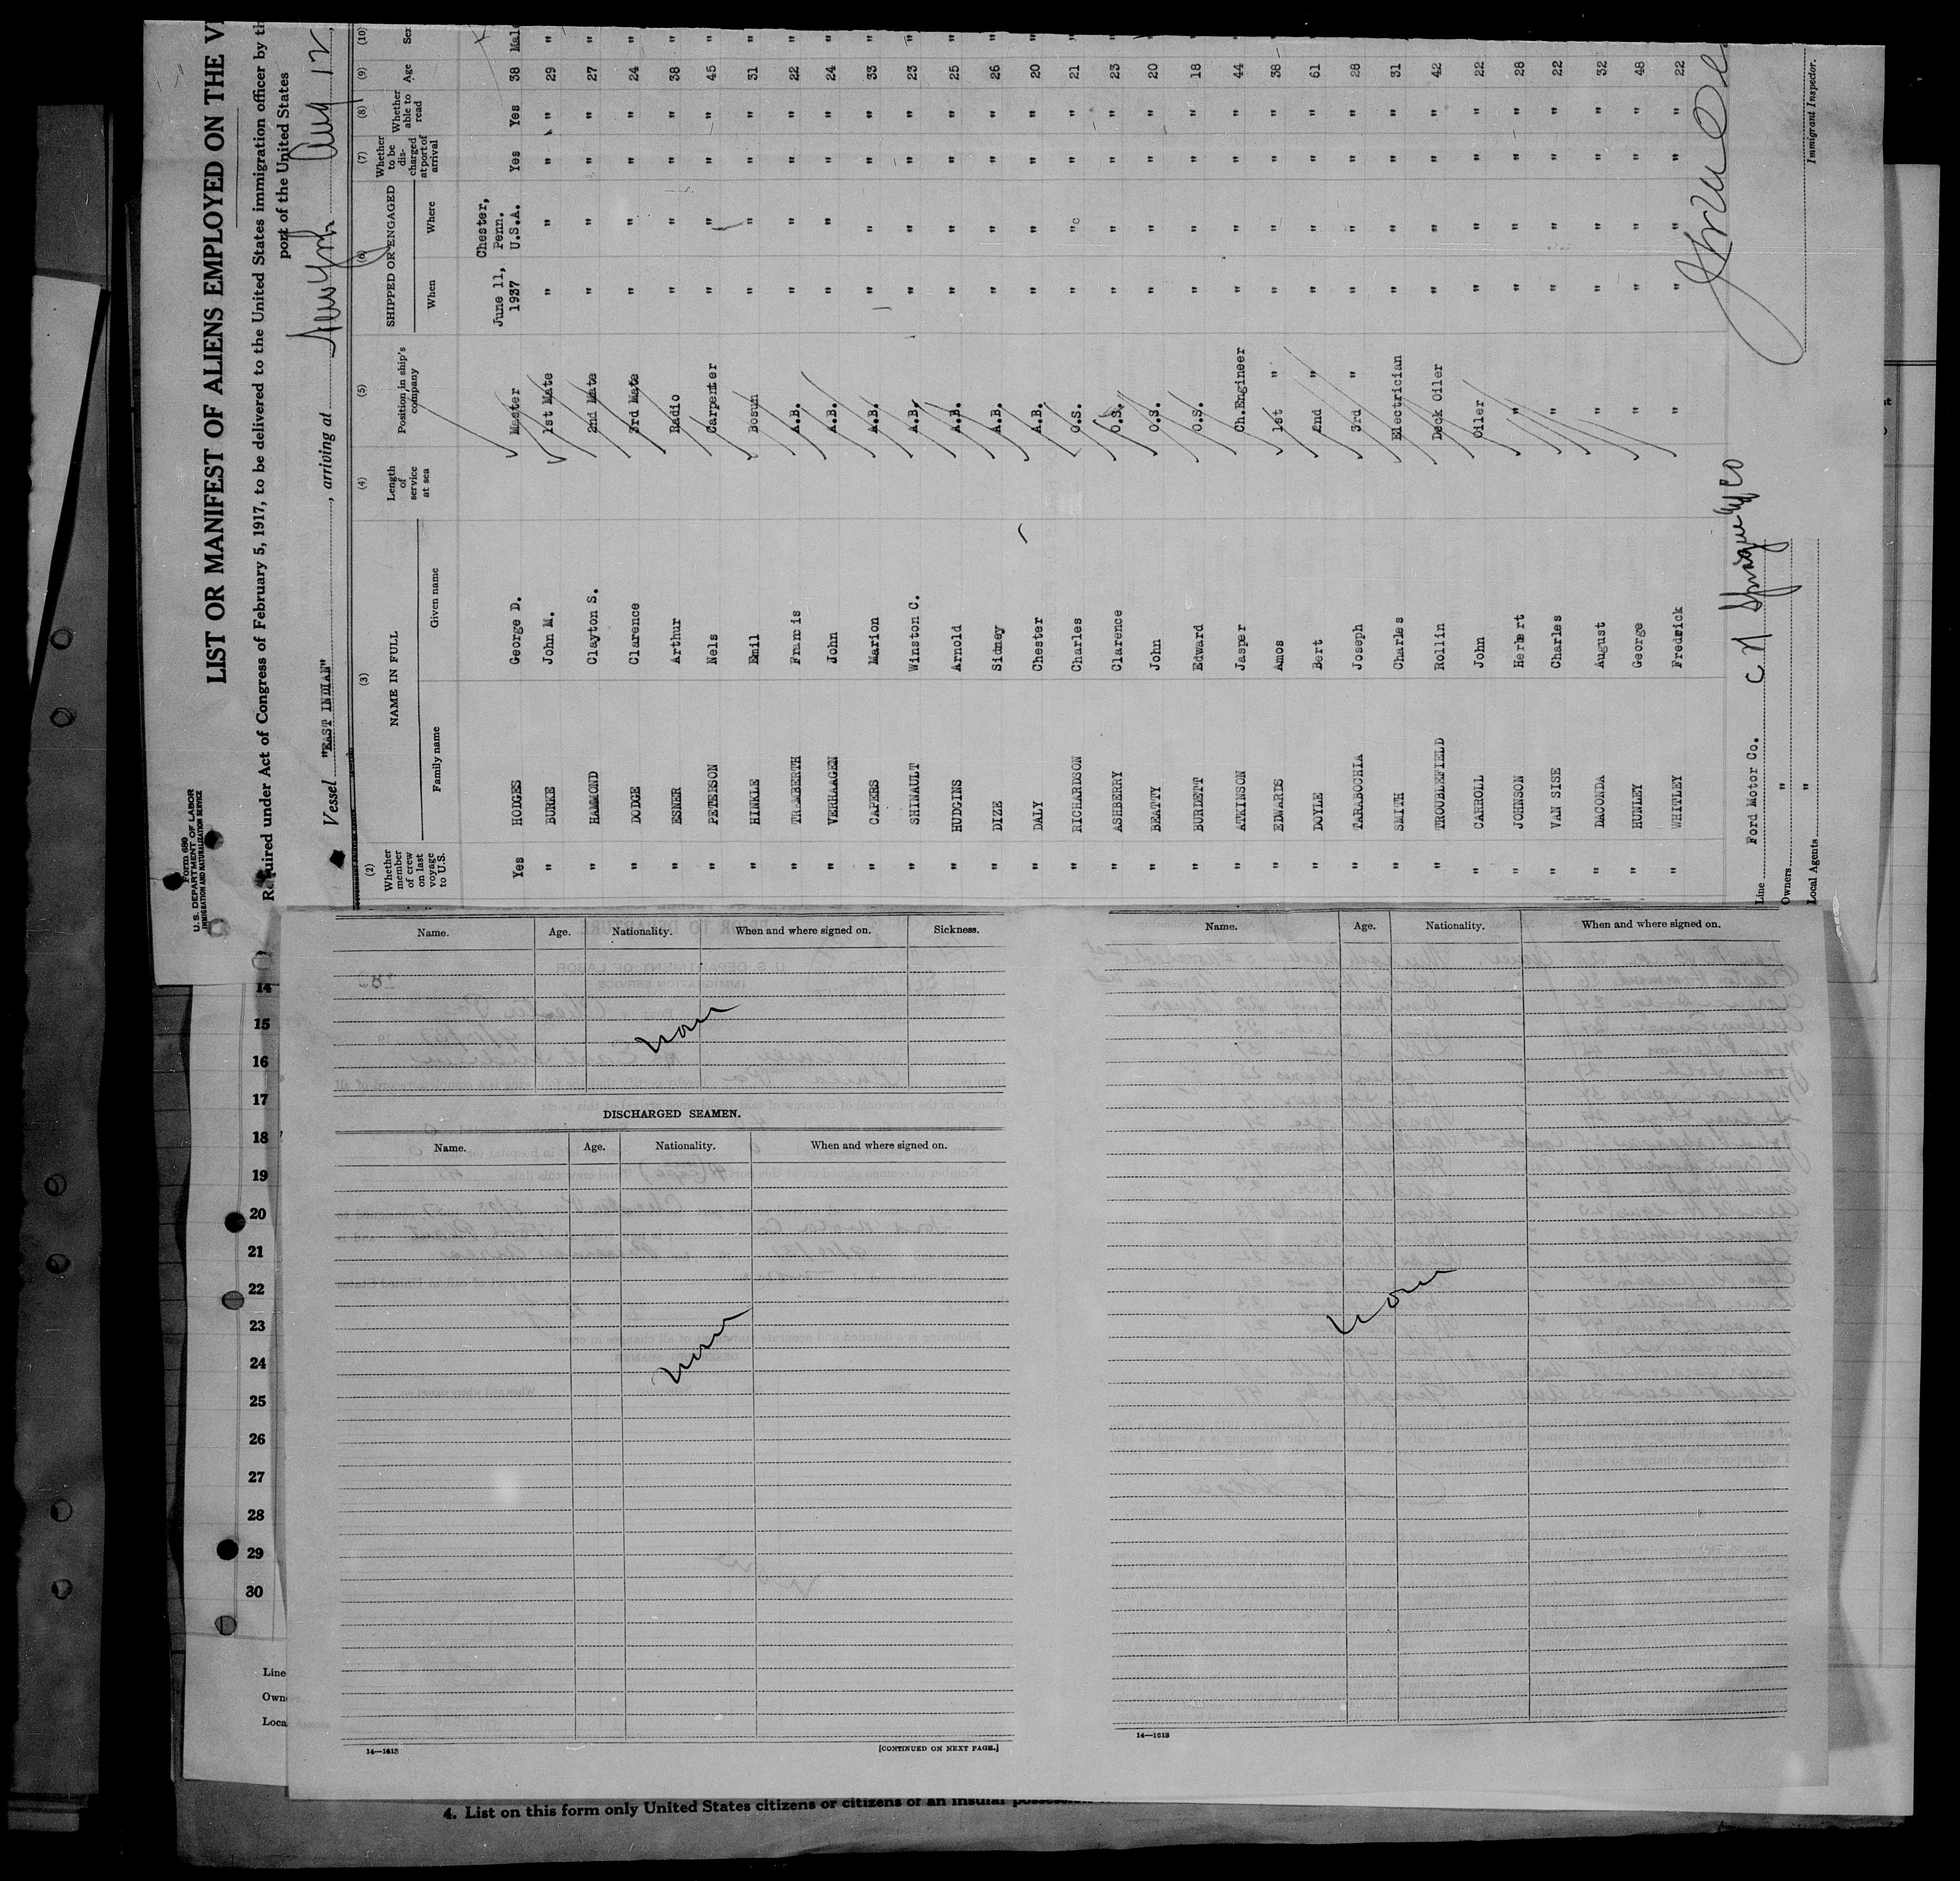 Form 686
U. S. DEPARTMENT OF LABOR
IMMIGRATION AND NATURALIZATION SERVICE
LIST OR MANIFEST OF ALIENS EMPLOYED ON THE
Required under Act of Congress of February 5, 1917, to be delivered to the United States immigration officer by
port of the United States
Vessel "EAST INDIAN", arriving at New York Aug 12,
(2) (3) (4) (5) (6) (7) (8) (9) (10)
Whether member of crew on last voyage to U.S. NAME IN FULL Family name Given name Length of service at sea Position in ship's company SHIPPED OR ENGAGED When Where Whether to be discharged at port of arrival Whether able to read Age Sex
Yes HODGES George D. Master June 11, 1937 Chester, Penn. U.S.A. Yes Yes 38 Male
" BURKE John M. 1st Mate " " " " 29 "
" HAMMOND Clayton S. 2nd Mate " " " " 27 "
" DODGE Clarence 3rd Mate " " " " 24 "
" ESNER Arthur Radio " " " " 38 "
" PETERSON Nels Carpenter " " " " 45 "
" HINKLE Emil Bosun " " " " 31 "
" TRAMBERTH Francis A.B. " " " " 22 "
" VERHAAGEN John A.B. " " " " 24 "
" CAPERS Marion A.B. " " " " 33 "
" SHINAULT Winston C. A.B. " " " " 23 "
" HUDGINS Arnold A.B. " " " " 25 "
" DIZE Sidney A.B. " " " " 26 "
" DALY Chester A.B. " " " " 20 "
" RICHARDSON Charles O.S. " " " " 21 "
" ASHBERRY Clarence O.S. " " " " 23 "
" BEATTY John O.S. " " " " 20 "
" BURDETT Edward O.S. " " " " 18 "
" ATKINSON Jasper Ch.Engineer " " " " 44 "
" EDWARDS Amos 1st " " " " " 38 "
" DOYLE Bert 2nd " " " " " 61 "
" TARABOCHIA Joseph 3rd " " " " " 28 "
" SMITH Charles Electrician " " " " 31 "
" TROUBLEFIELD Rollin Deck Oiler " " " " 42 "
" CARROLL John Oiler " " " " 22 "
" JOHNSON Herbert " " " " " 28 "
" VAN SISE Charles " " " " " 22 "
" DACONDA August " " " " " 32 "
" HURLEY George " " " " " 48 "
" WHITLEY Fredrick " " " " " 22 "
Line Ford Motor Co. C H Sprague & Co
Owners " "
Local Agents "
Immigrant Inspector.
Name. Age. Nationality. When and where signed on. Sickness.
None
DISCHARGED SEAMEN.
Name. Age. Nationality. When and where signed on.
None
14—1613
[CONTINUED ON NEXT PAGE.]
Name. Age. Nationality. When and where signed on.
None
14—1613
14
15
16
17
18
19
20
21
22
23
24
25
26
27
28
29
30
Line
Own
Loca
4. List on this form only United States citizens or citizens of an insular